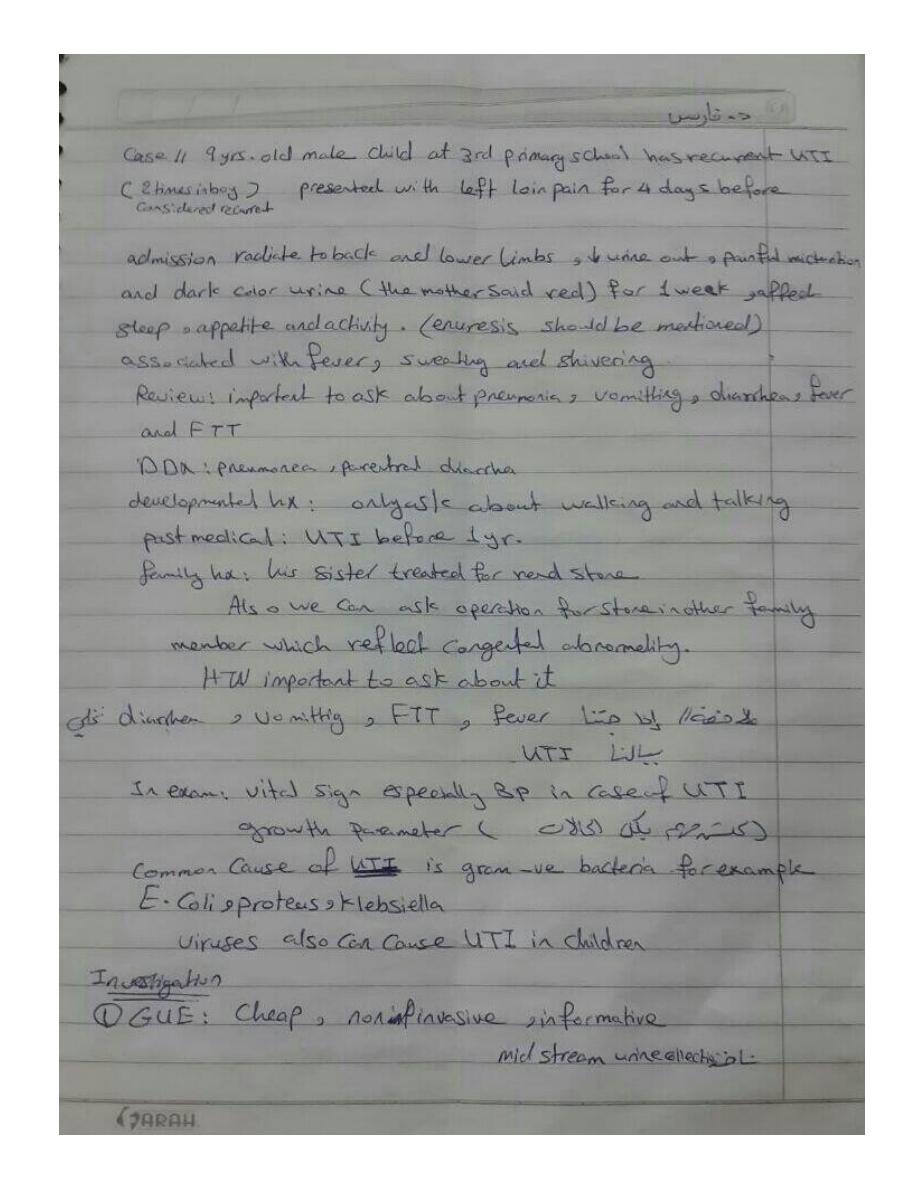 د. فارس
Case // 9 yrs. old male child at 3rd primary school has recurrent UTI
(2 times in boy) presented with left loin pain for 4 days before
Considered recurret
admission radiate to back and lower limbs, ↓ urine out, painful micturation
and dark color urine (the mother said red) for 1 week, affect
sleep, appetite and activity. (enuresis should be mentioned)
associated with fever, sweating and shivering
Review: important to ask about pneumonia, vomitting, diarrhea, fever
and FTT
DDx: pneumonea, parentral diarrha
developmental hx: only ask about walking and talking
past medical: UTI before 1 yr.
family hx: his sister treated for renal stone
Also we can ask operation for stone in other family
member which reflect congental abnormality.
HTN important to ask about it
ملاحظة// إذا جتنا diarrhea, vomittig, FTT, fever
بالنا UTI
In exam: vital sign especially BP in case of UTI
growth parameter ( بكل الحالات )
Common Cause of UTI is gram -ve bacteria for example
E. Coli, proteus, klebsiella
viruses also can cause UTI in children
Investigation
① GUE: Cheap, non invasive, informative
mid stream urine collection ناخذ
SARAH